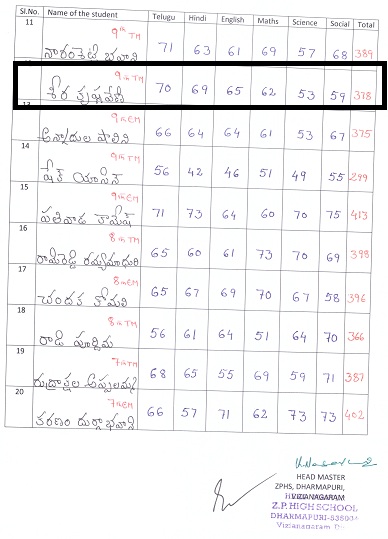 Sl.No. Name of the student Telugu Hindi English Maths Science Social Total
11 9th TM
నారంశెటి భవాని 71 63 61 69 57 68 389
9th TM
70 69 65 62 53 59 378
13 9th EM
షాలిని 66 64 64 61 53 67 375
14 9th TM
షేక్ యాసిన్ 56 42 46 51 49 55 299
15 9th EM
పతివాడ కామేష్ 71 73 64 60 70 75 413
16 8th TM
రామిరెడ్డి రమ్యమాధురి 65 60 61 73 70 69 398
17 8th EM
చందక కోమలి 65 67 69 70 67 58 396
18 8th TM
రాడి పూర్ణిమ 56 61 64 51 64 70 366
19 7th TM
రుద్రాక్షల అప్పలమ్మ 68 65 55 69 59 71 387
20 7th EM
కరణం దుర్గాభవాని 66 57 71 62 73 73 402
HEAD MASTER
ZPHS, DHARMAPURI,
VIZIANAGARAM
Z.P. HIGH SCHOOL
DHARMAPURI-53500
Vizianagaram